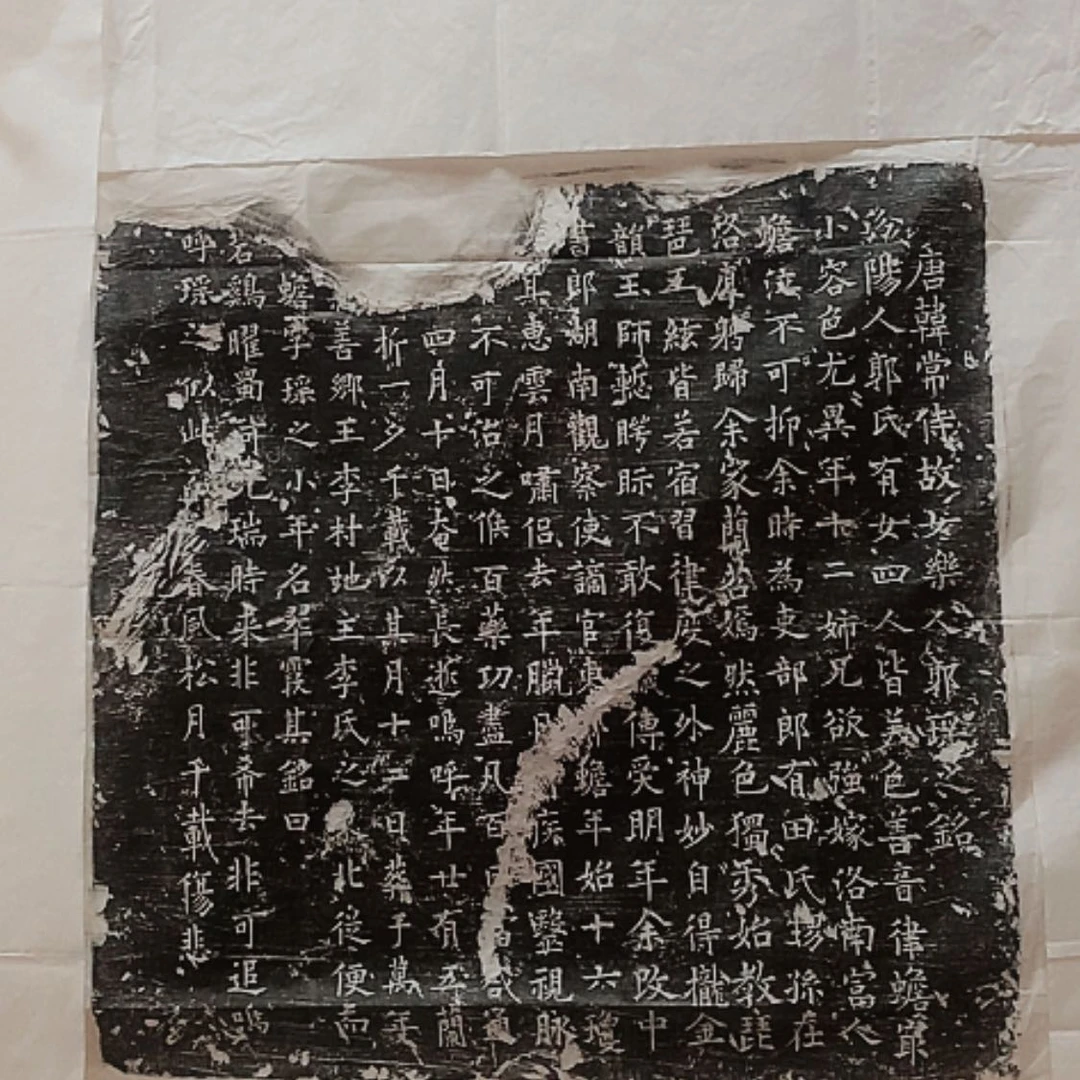 唐韓常侍故女樂人郭瑤之銘
洛陽人郭氏有女四人皆美色善音律蟾最
小容色尤異年十二姊兄欲強嫁洛南富人
蟾使不可抑余時為吏部郎有田氏揚孫在
洛厚騁歸余家蘭若嫣然麗色獨秀始教琵
琶玉絃皆若宿習律度之外神妙自得攏金
韻玉師聽眙不敢復傳受明年余改中
書郎湖南觀察使謫官東蟾年始十六瓊
其惠雲月嘯侶去年臘月疾國醫視脉
不可治之候百藥功盡凡百咸通
四月十日奄然長逝嗚呼年廿有五蘭
折一夕千載以其月十二日葬于萬年
善鄉王李村地主李氏之北從便而
蟾字瑤之小年名翠霞其銘曰
若鷄曜蜀何光瑞時來非可希去非可追嗚
呼瑤之似此春風松月千載傷悲